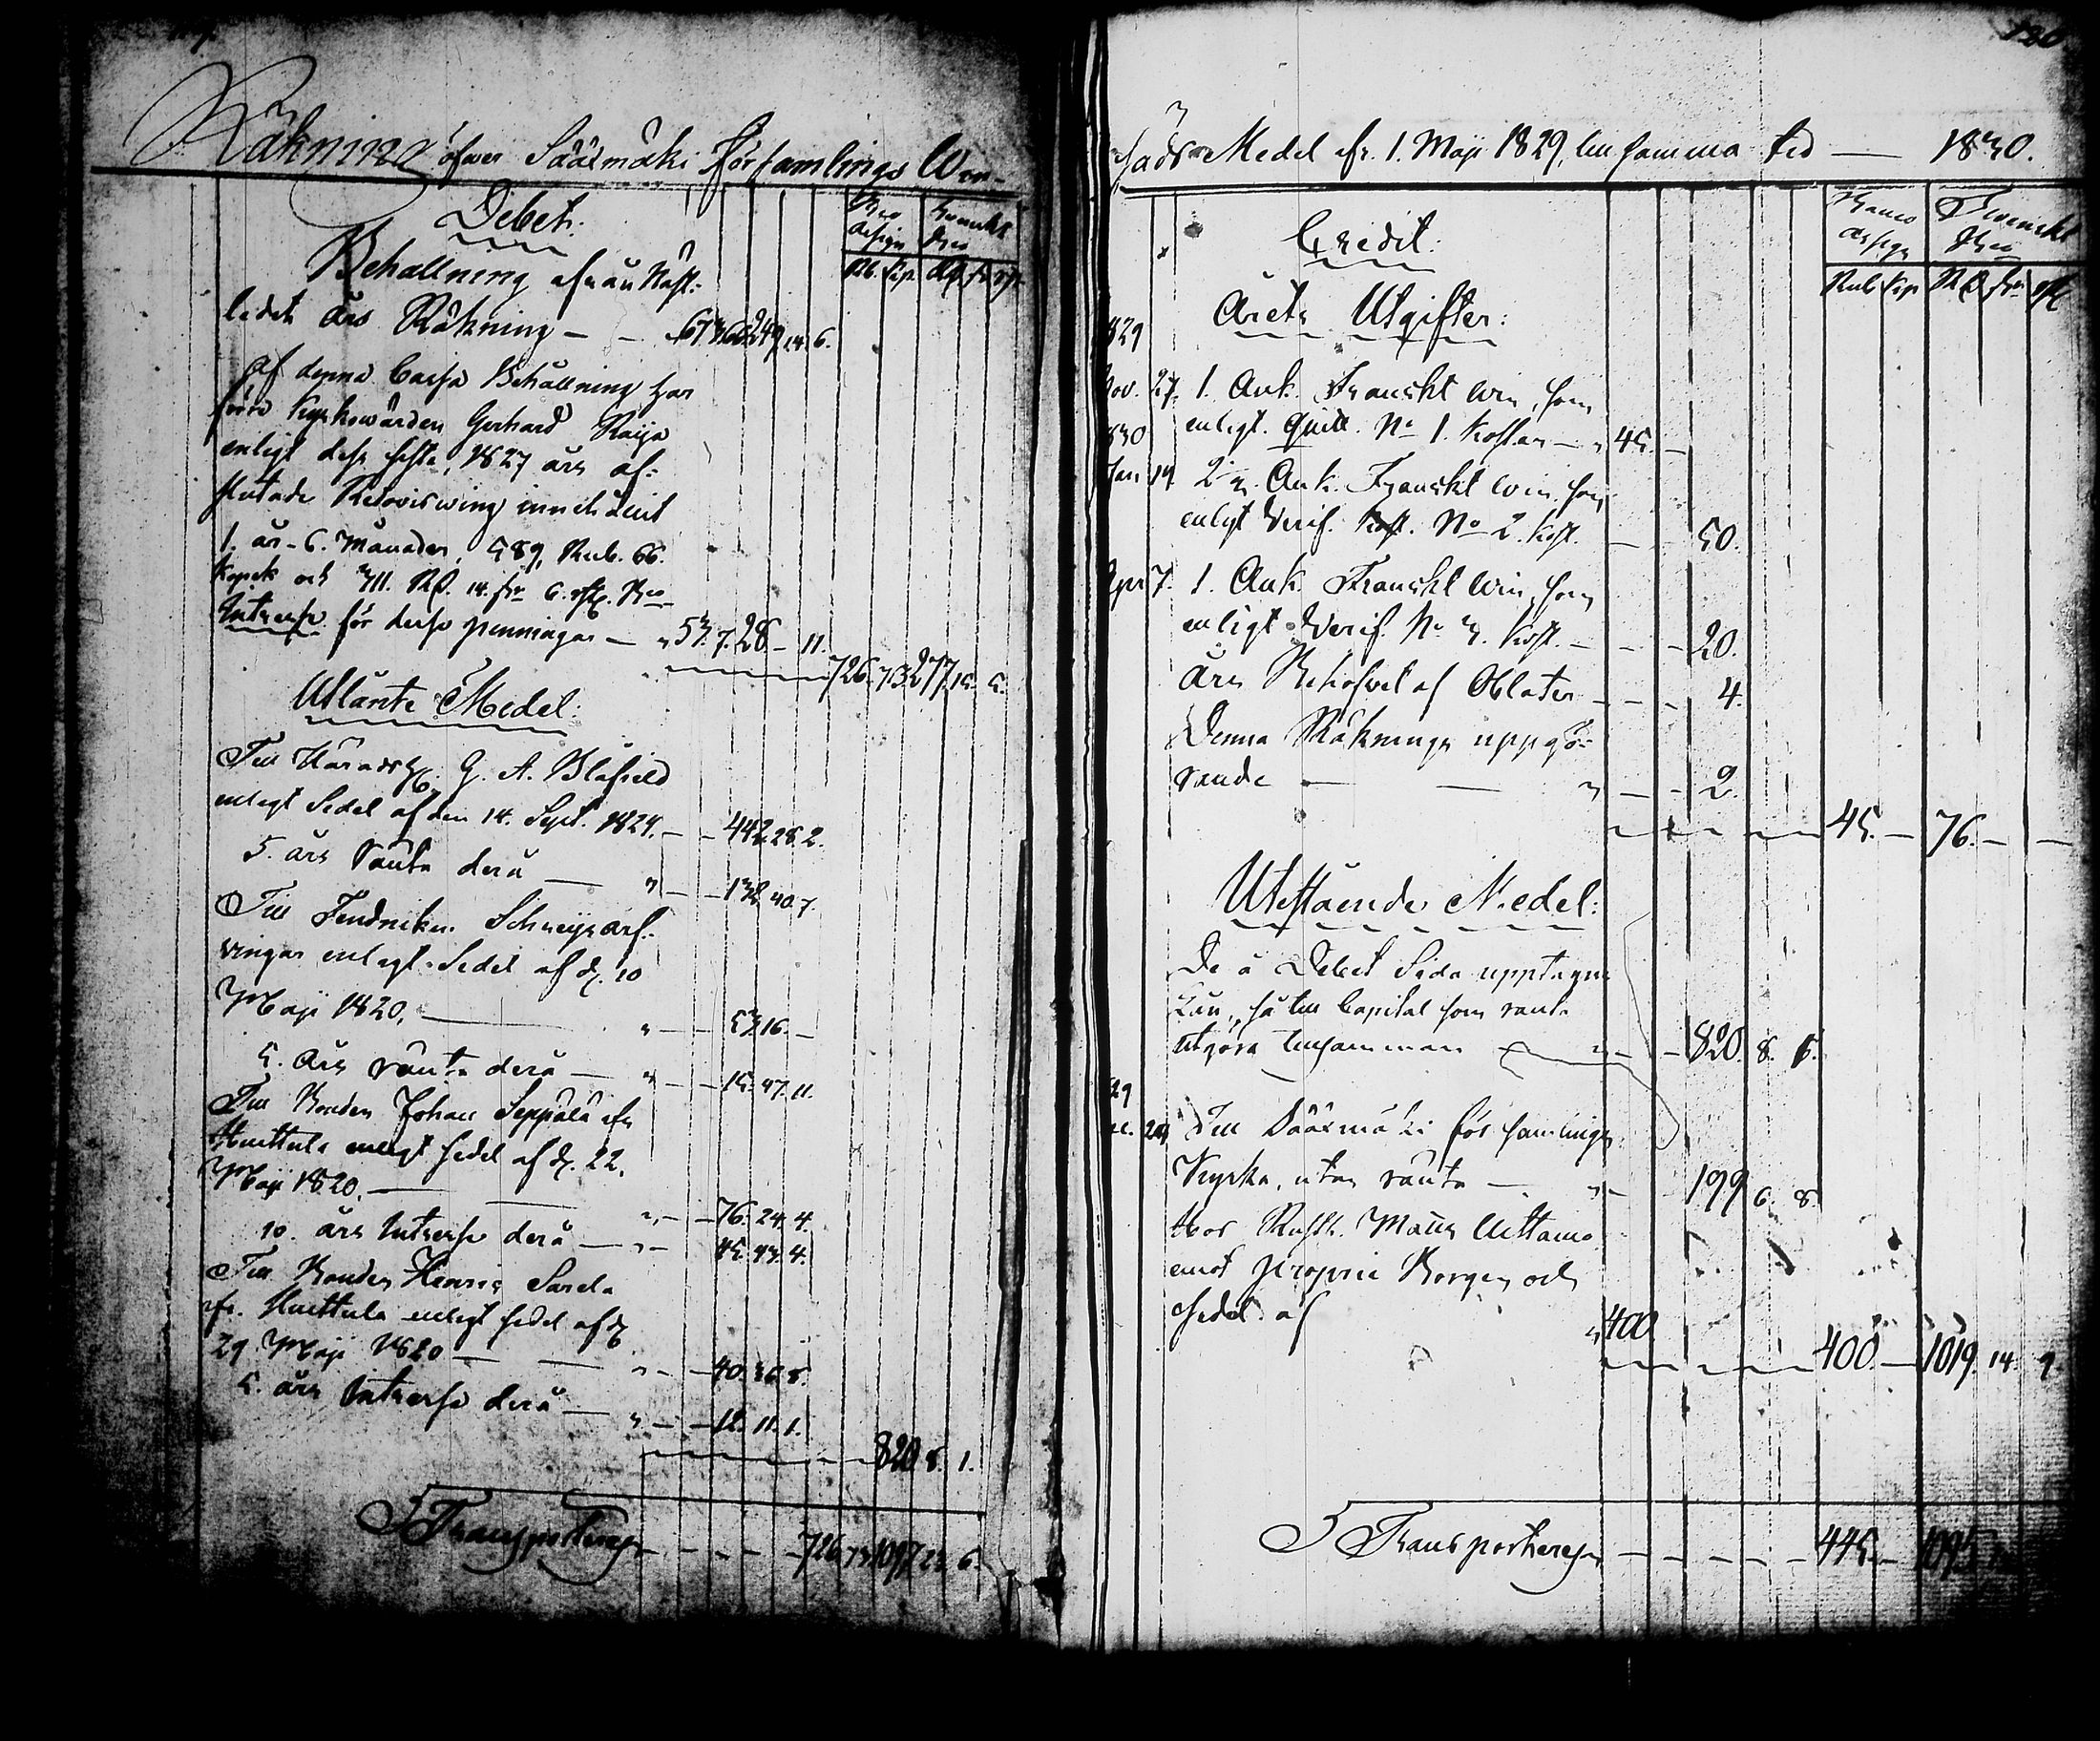 Räkning öfwer Sääxmäki Församlings Win-
Debet:
Bco Assign
Svenskt Bco
Rb. kop. RD. sk. rst.
Behållning ifrån Näst-
ledit Års Räkning — - 673.66. 249. 14. 6.
Af denna Cassa Behållning har
förre Kyrkowärden Gerhard Raija
enligt dess sista, 1827 års af-
slutade Redovisning innehållit
1. år - 6. Månader, 589, Rub. 66.
Kopek och 311. RD. 14. sk. 6. rst. Bco
Intresse för desse penningar — " 53. 7. 28. - 11.
726. 73. 277. 15. 5.
Utlånte Medel:
Till Häradsh. G. A. Blåfield
enligt Sedel af den 14. Sept. 1824. — - 442. 28. 2.
5. års ränta derå — " — - 132. 40. 7.
Till Fendriken Schreijs arf-
vingar enligt Sedel af d. 10
Maji 1820. — " — - 53. 16. —
5. års ränta derå — " — - 15. 47. 11.
Till Bonden Johan Seppälä ifr.
Huittula enligt sedel af d. 22.
Maji 1820. — " — - 76. 24. 4.
10. års Intresse derå — " — 45. 43. 4.
Till Bonden Henric Sarela
ifr. Huittula enligt sedel af d.
29 Maji 1820 — " — - 40. 36. 8.
5. års Intresse derå — " — - 12. 11. 1.
820. 8. 1.
Transporteras - - - - - 726. 73. 1097. 23. 6.
120
säds Medel ifr. 1. Maji 1829, till samma tid — 1830.
Credit:
Banco Assign
Svenskt Bco
Rub kop RD sk. rst
Årets Utgifter:
829
Nov. 27. 1. Ank. Franskt Win, som
enligt. quitt. No 1. kostar — " 45. —
830
Jan 14 2 1/2. Ank. Franskt Win, som
enligt Verif. No 2. kost. — - 50.
Apr 7. 1. Ank. Franskt Win, som
enligt Verif. No 3. kost. — - - 20.
Års Behofvet af Oblater - - - 4.
Denna Räknings uppgö-
rande — — " — - 2.
45. — 76. — —
Utestående Medel:
De å Debet Sida upptagne
Lån, så till Capital som ränta
utgöra tillsamman — " — - 820. 8. 1.
29
24 Till Sääxmäki församlings
Kyrka, utan ränta — " - 199 6. 8.
Hos Rusth. Matts Uittamo
emot proprie Borgen och
Sedel af " 400
400. — 1019. 14. 9.
Transporteras — - - - - 445. —